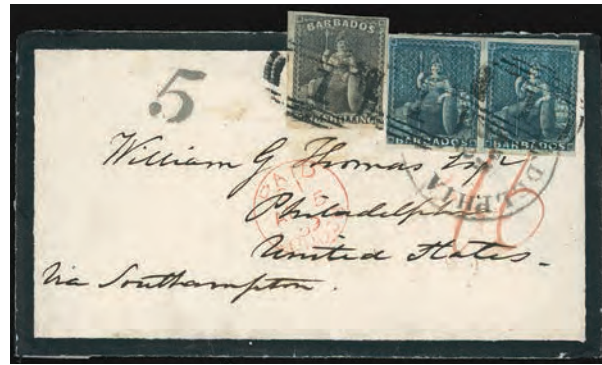 BARBADOS
SHILLING
BARBADOS BARBADOS
5
William G Thomas Esqr
Philadelphia
United States -
Via Southampton.
PAID
LPHIA